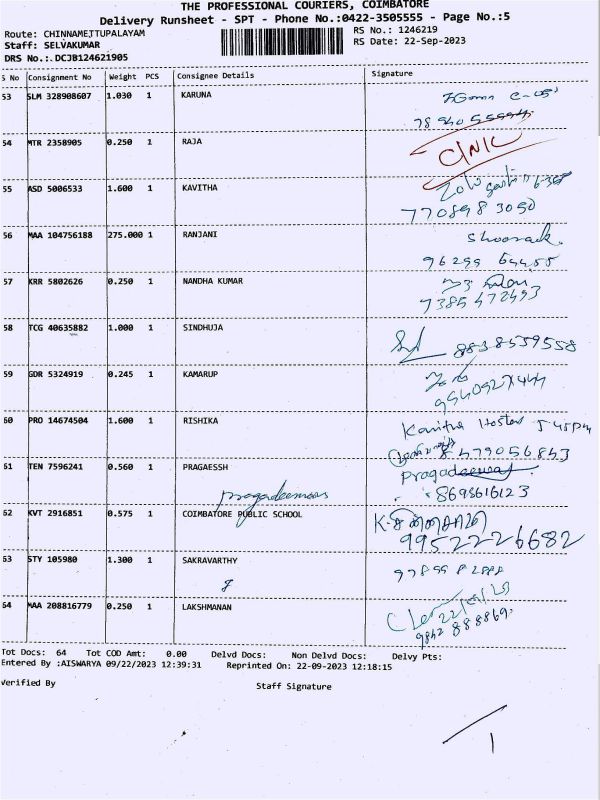 THE PROFESSIONAL COURIERS, COIMBATORE
Delivery Runsheet - SPT - Phone No.:0422-3505555 - Page No.:5
Route: CHINNAMETTUPALAYAM RS No.: 1246219
Staff: SELVAKUMAR RS Date: 22-Sep-2023
DRS No.:.DCJB124621905
S No Consignment No Weight PCS Consignee Details Signature
53 SLM 328908607 1.030 1 KARUNA
54 MTR 2358905 0.250 1 RAJA CINIC
55 ASD 5006533 1.600 1 KAVITHA
770898 3050
56 MAA 104756188 275.000 1 RANJANI
96299 64455
57 KRR 5802626 0.250 1 NANDHA KUMAR
7385472493
58 TCG 40635882 1.000 1 SINDHUJA
8838539558
59 GDR 5324919 0.245 1 KAMARUP
60 PRO 14674504 1.600 1 RISHIKA Kavitha Hostel 5 45PM
8479056843
61 TEN 7596241 0.560 1 PRAGAESSH
8695616123
62 KVT 2916851 0.575 1 COIMBATORE PUBLIC SCHOOL
9952226682
63 STY 105980 1.300 1 SAKRAVARTHY
64 MAA 208816779 0.250 1 LAKSHMANAN 22/09/23
9842 888869
Tot Docs: 64 Tot COD Amt: 0.00 Delvd Docs: Non Delvd Docs: Delvy Pts:
Entered By :AISWARYA 09/22/2023 12:39:31 Reprinted On: 22-09-2023 12:18:15
Verified By Staff Signature